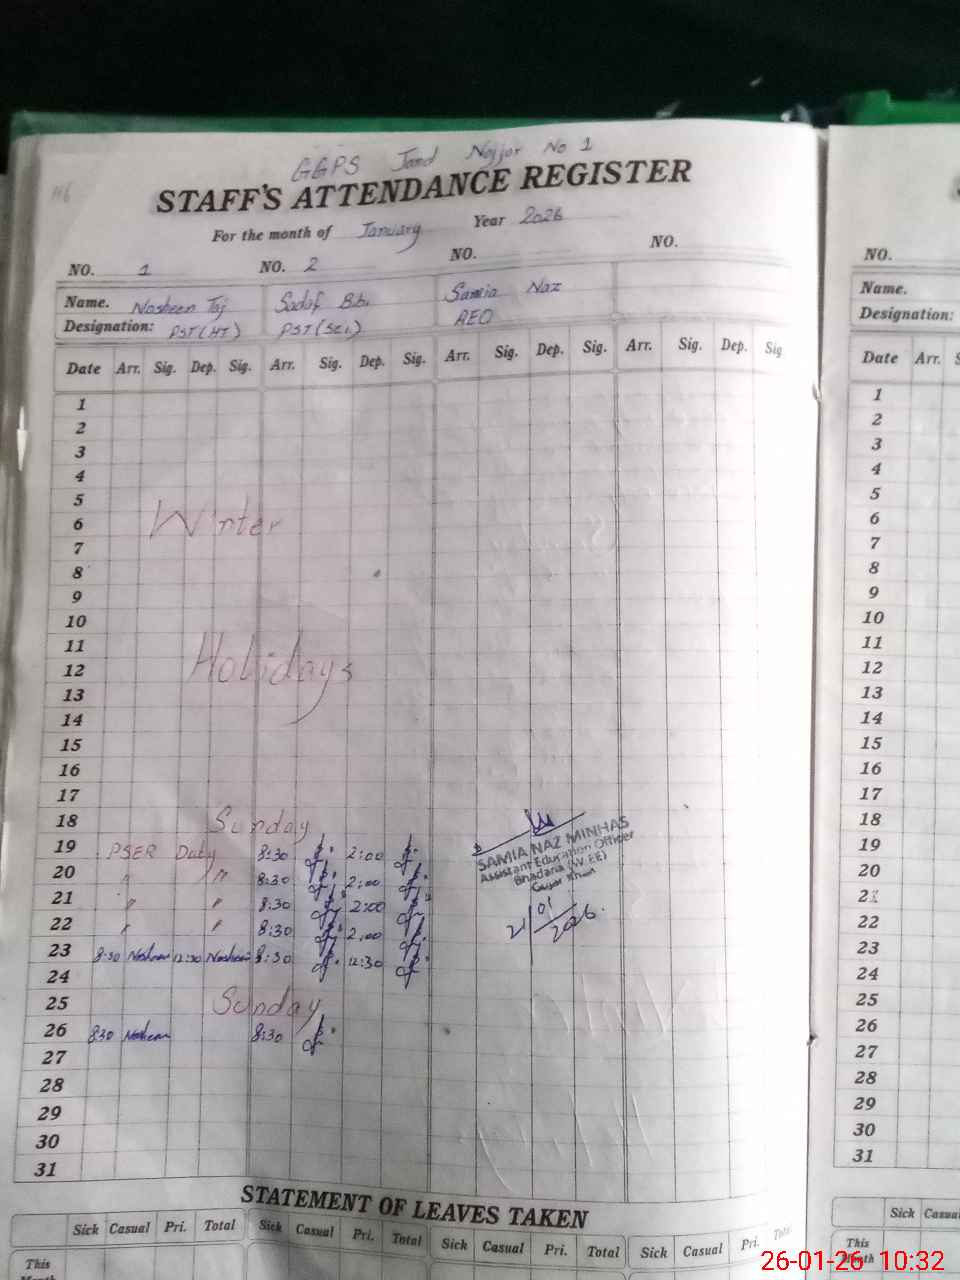 GGPS Jand Najjar No 1
STAFF'S ATTENDANCE REGISTER
For the month of January Year 2026
NO. 1 NO. 2 NO. NO.
Name. Nosheen Taj Sadaf Bibi Samia Naz
Designation: PST(HT) PST(SCI) AEO
Date Arr. Sig. Dep. Sig. Arr. Sig. Dep. Sig. Arr. Sig. Dep. Sig. Arr. Sig. Dep. Sig
1
2
3
4
5
6 Winter
7
8
9
10
11
12 Holidays
13
14
15
16
17
18 Sunday
19 PSER Duty 8:30 2:00
20 " " 8:30 2:00
21 " " 8:30 2:00
22 " " 8:30 2:00
23 8:30 Nosheen 12:30 Nosheen 8:30 12:30
24
25 Sunday
26 830 Nosheen 8:30
27
28
29
30
31
SAMIA NAZ MINHAS
Assistant Education Officer
Bhadana (W.EE)
Gujar Khan
21/01/2026.
STATEMENT OF LEAVES TAKEN
Sick Casual Pri. Total Sick Casual Pri. Total Sick Casual Pri. Total Sick Casual Pri. Total
This
Month
NO.
Name.
Designation:
Date Arr. S
1
2
3
4
5
6
7
8
9
10
11
12
13
14
15
16
17
18
19
20
21
22
23
24
25
26
27
28
29
30
31
Sick Casual
This
Month
26-01-26 10:32